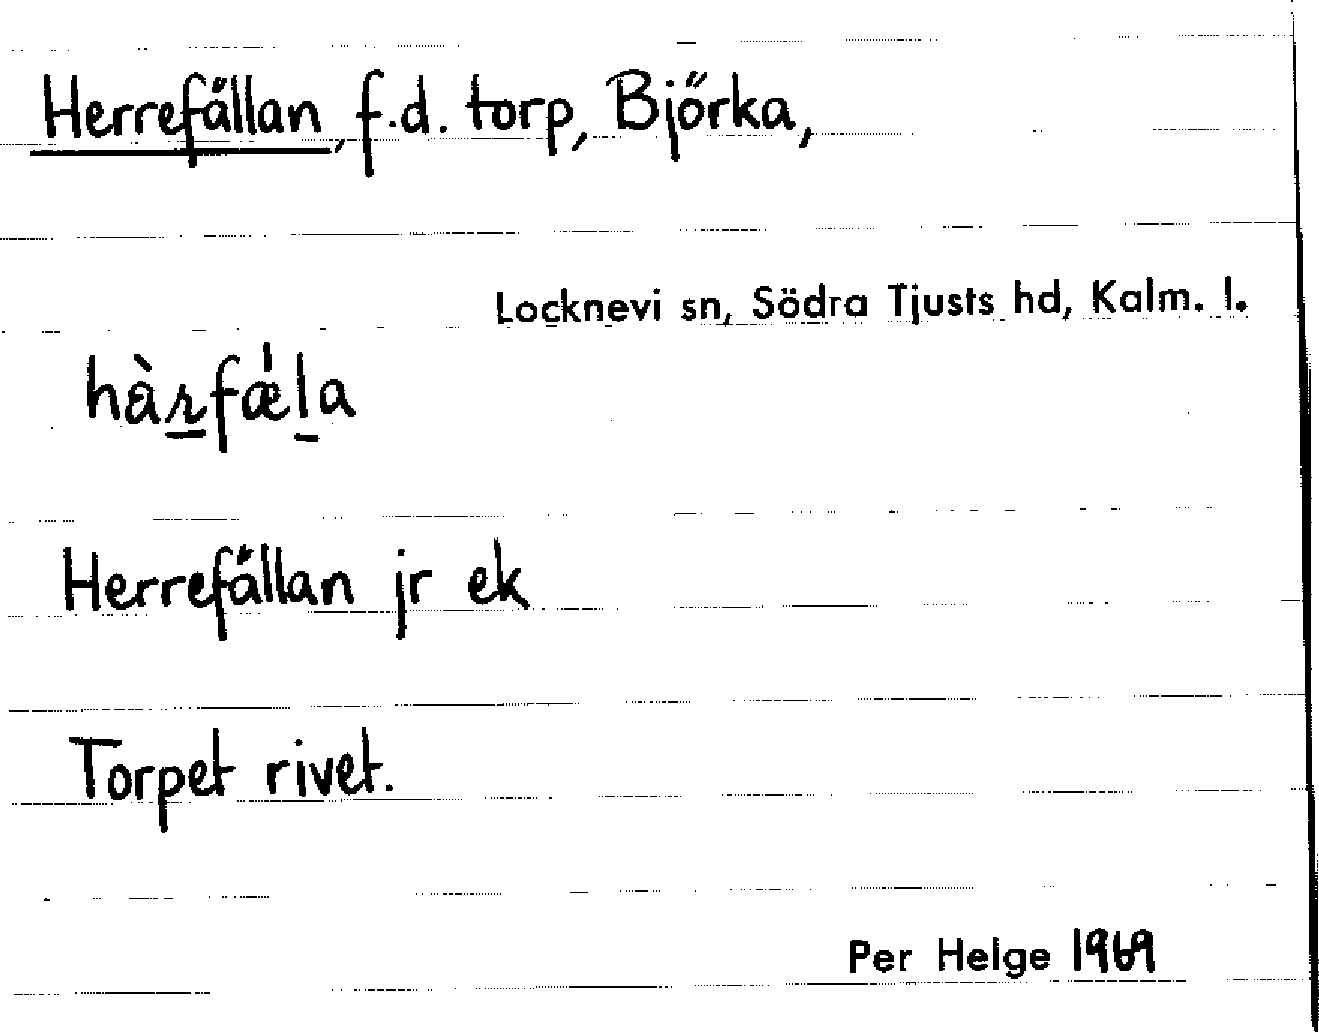 Herrefällan, f.d. torp, Björka,
Locknevi sn, Södra Tjusts hd, Kalm. l.
hàrfǽla
Herrefällan jr ek
Torpet rivet.
Per Helge 1969